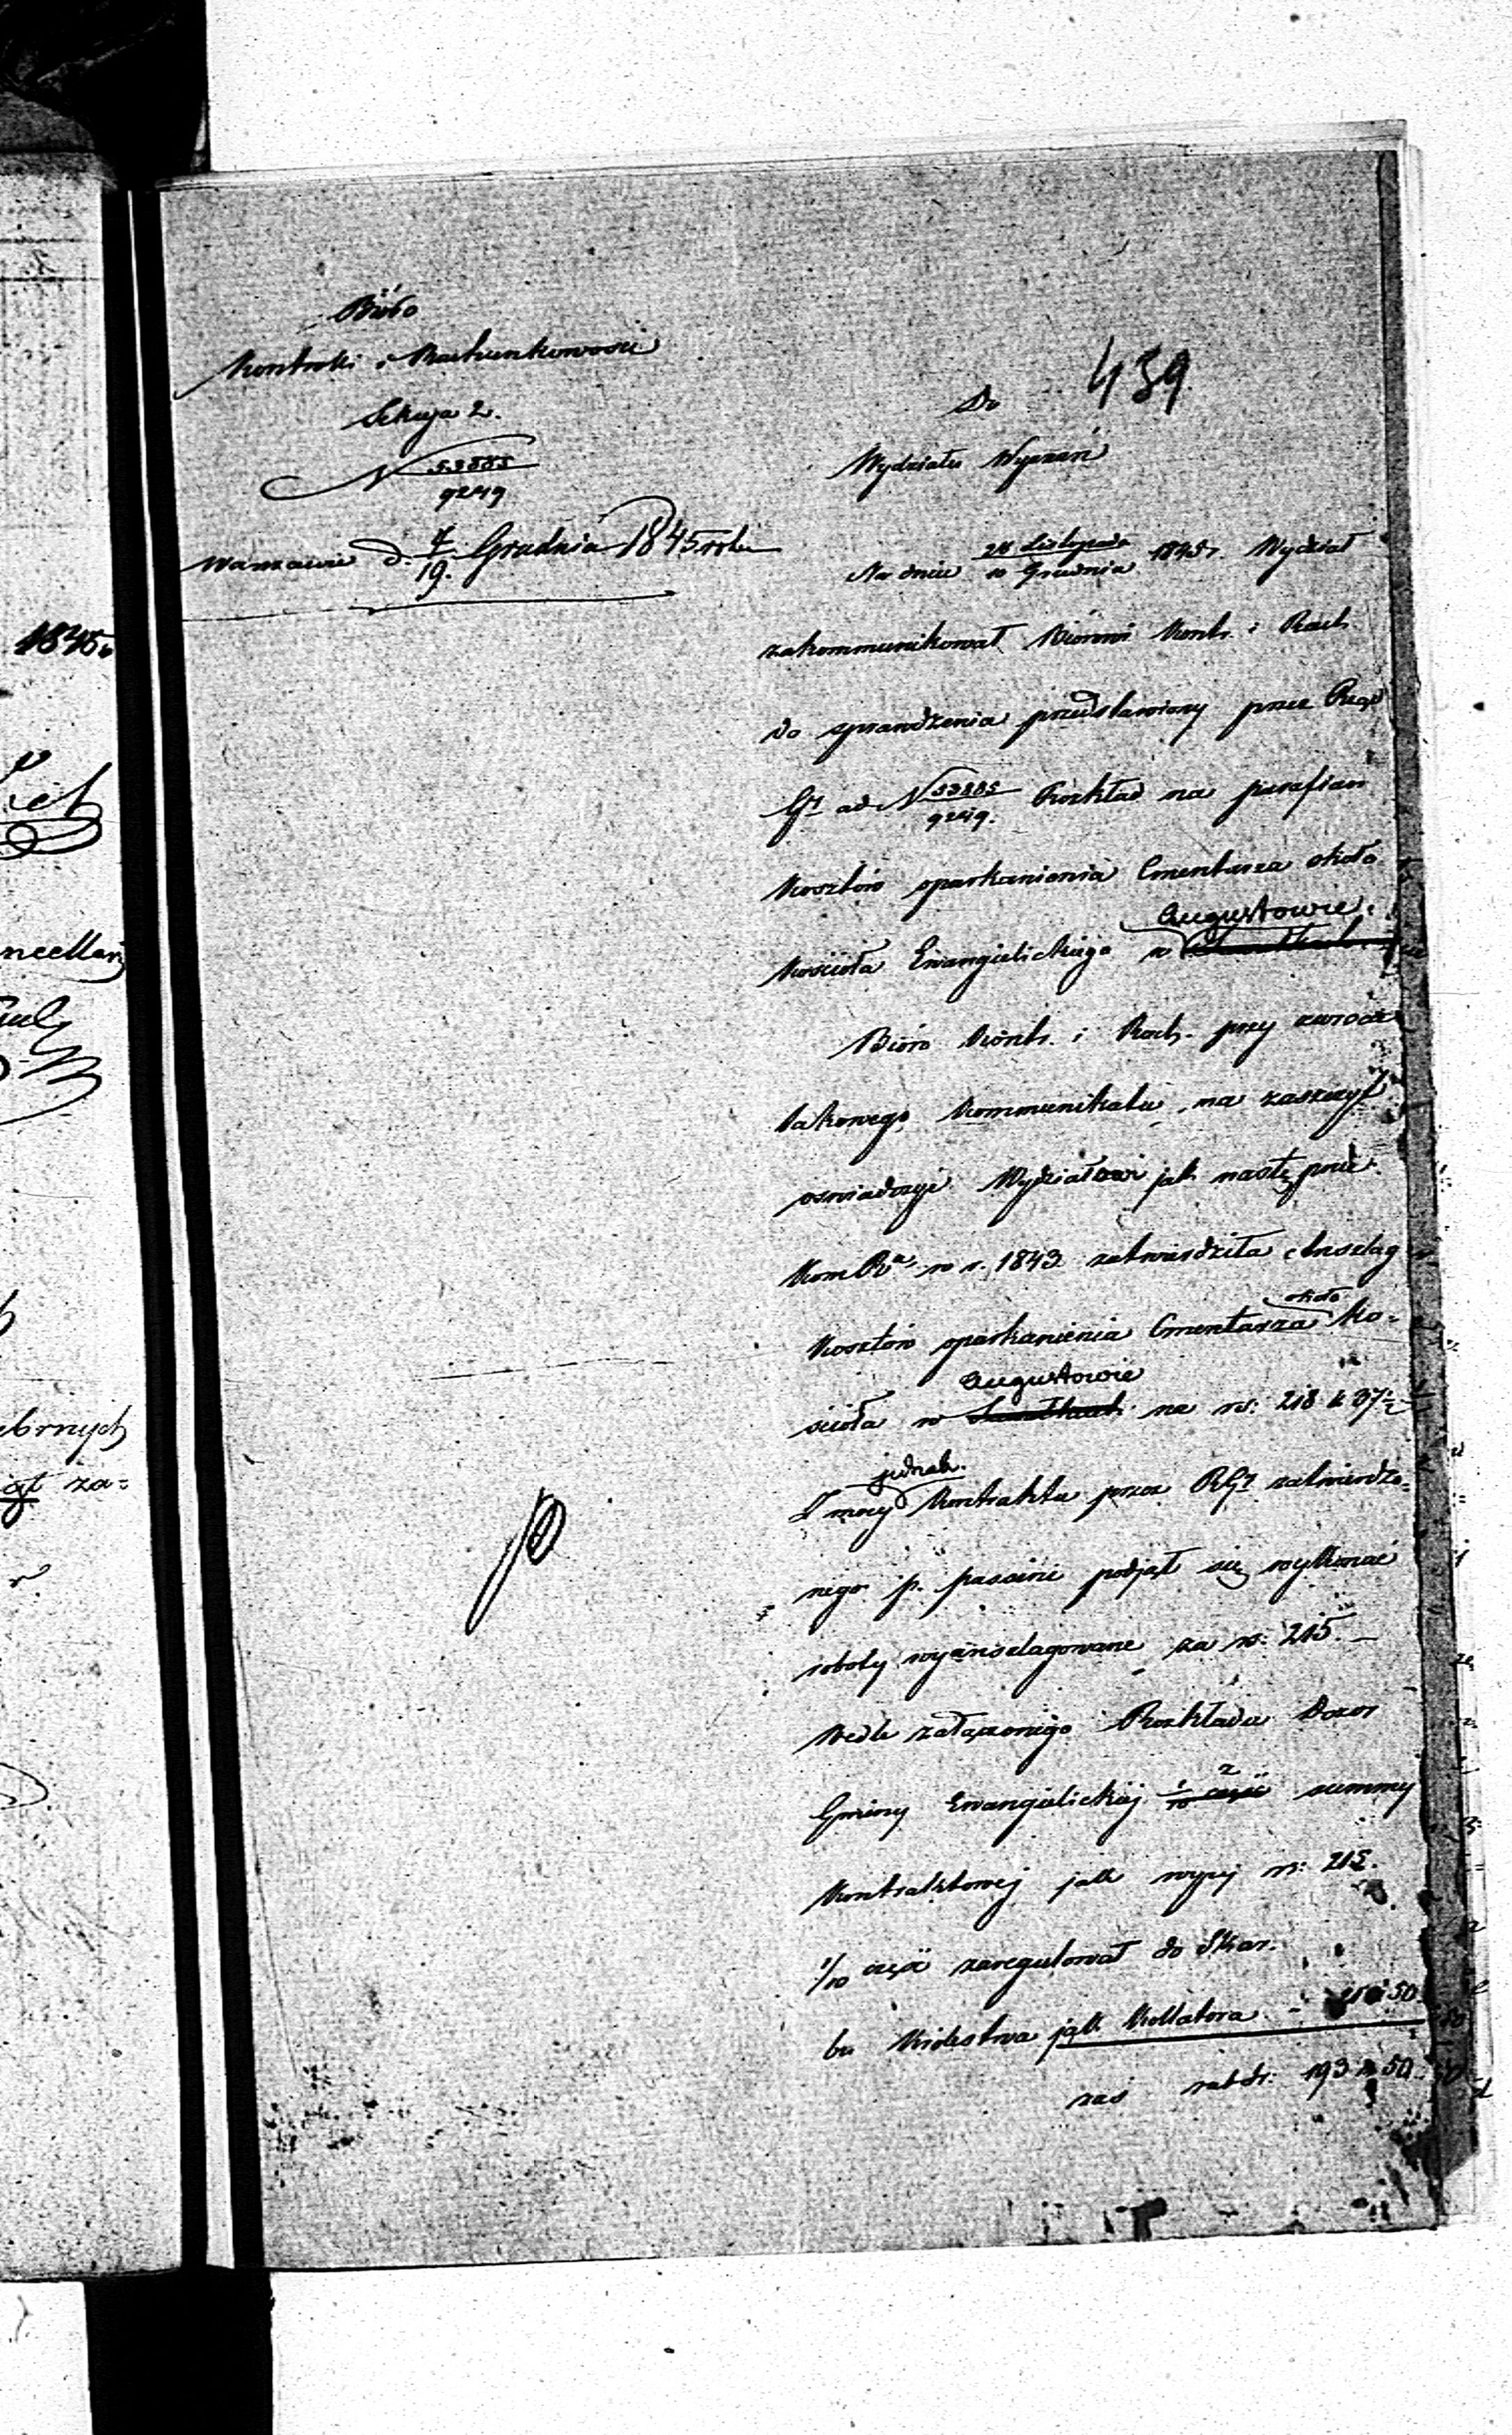 Bióro
Kontroli i Rachunkowości
Sekcja 2.
N 53885
9249
Warszawie d. 7/19. Grudnia 1845 roku
439
Do
Wydziału Wyznań
Na dniu 28 Listopada
10 Grudnia 1845 r. Wydział
zakommunikował Biórowi Kontr. i Rach
do sprawdzenia przedstawiony przez Rząd
Gł ad N 53885
9249. Rozkład na parafian
kosztów oparkanienia Cmentarza około
Augustowie
Kościoła Ewangielickiego w
Bióro Kontr. i Rach. przy zwrocie
takowego kommunikatu, ma zaszczyt
oświadczyć Wydziałowi jak następuie.
Kom Rza w r. 1843 zatwierdziła Anszlag
około
kosztów oparkanienia Cmentarza Ko=
Augustowie
ścioła w na rs: 218 k 37½
jednak
Z mocy Kontraktu przez RGł zatwierdzo=
nego p. podjął się wykonać
roboty wyanszlagowane za rs: 215. —
Wedle załączonego Rozkładu Dozor
2
Gminy Ewangielickiej 1/10 część summy
Kontraktowej jak wyżej rs: 215.
1/10 część zaregulował do Skar.
bu Królestwa jak Kollatora - 21 50
zaś rubsr: 193 k 50
1845
ncellarj
ebrnych
za=